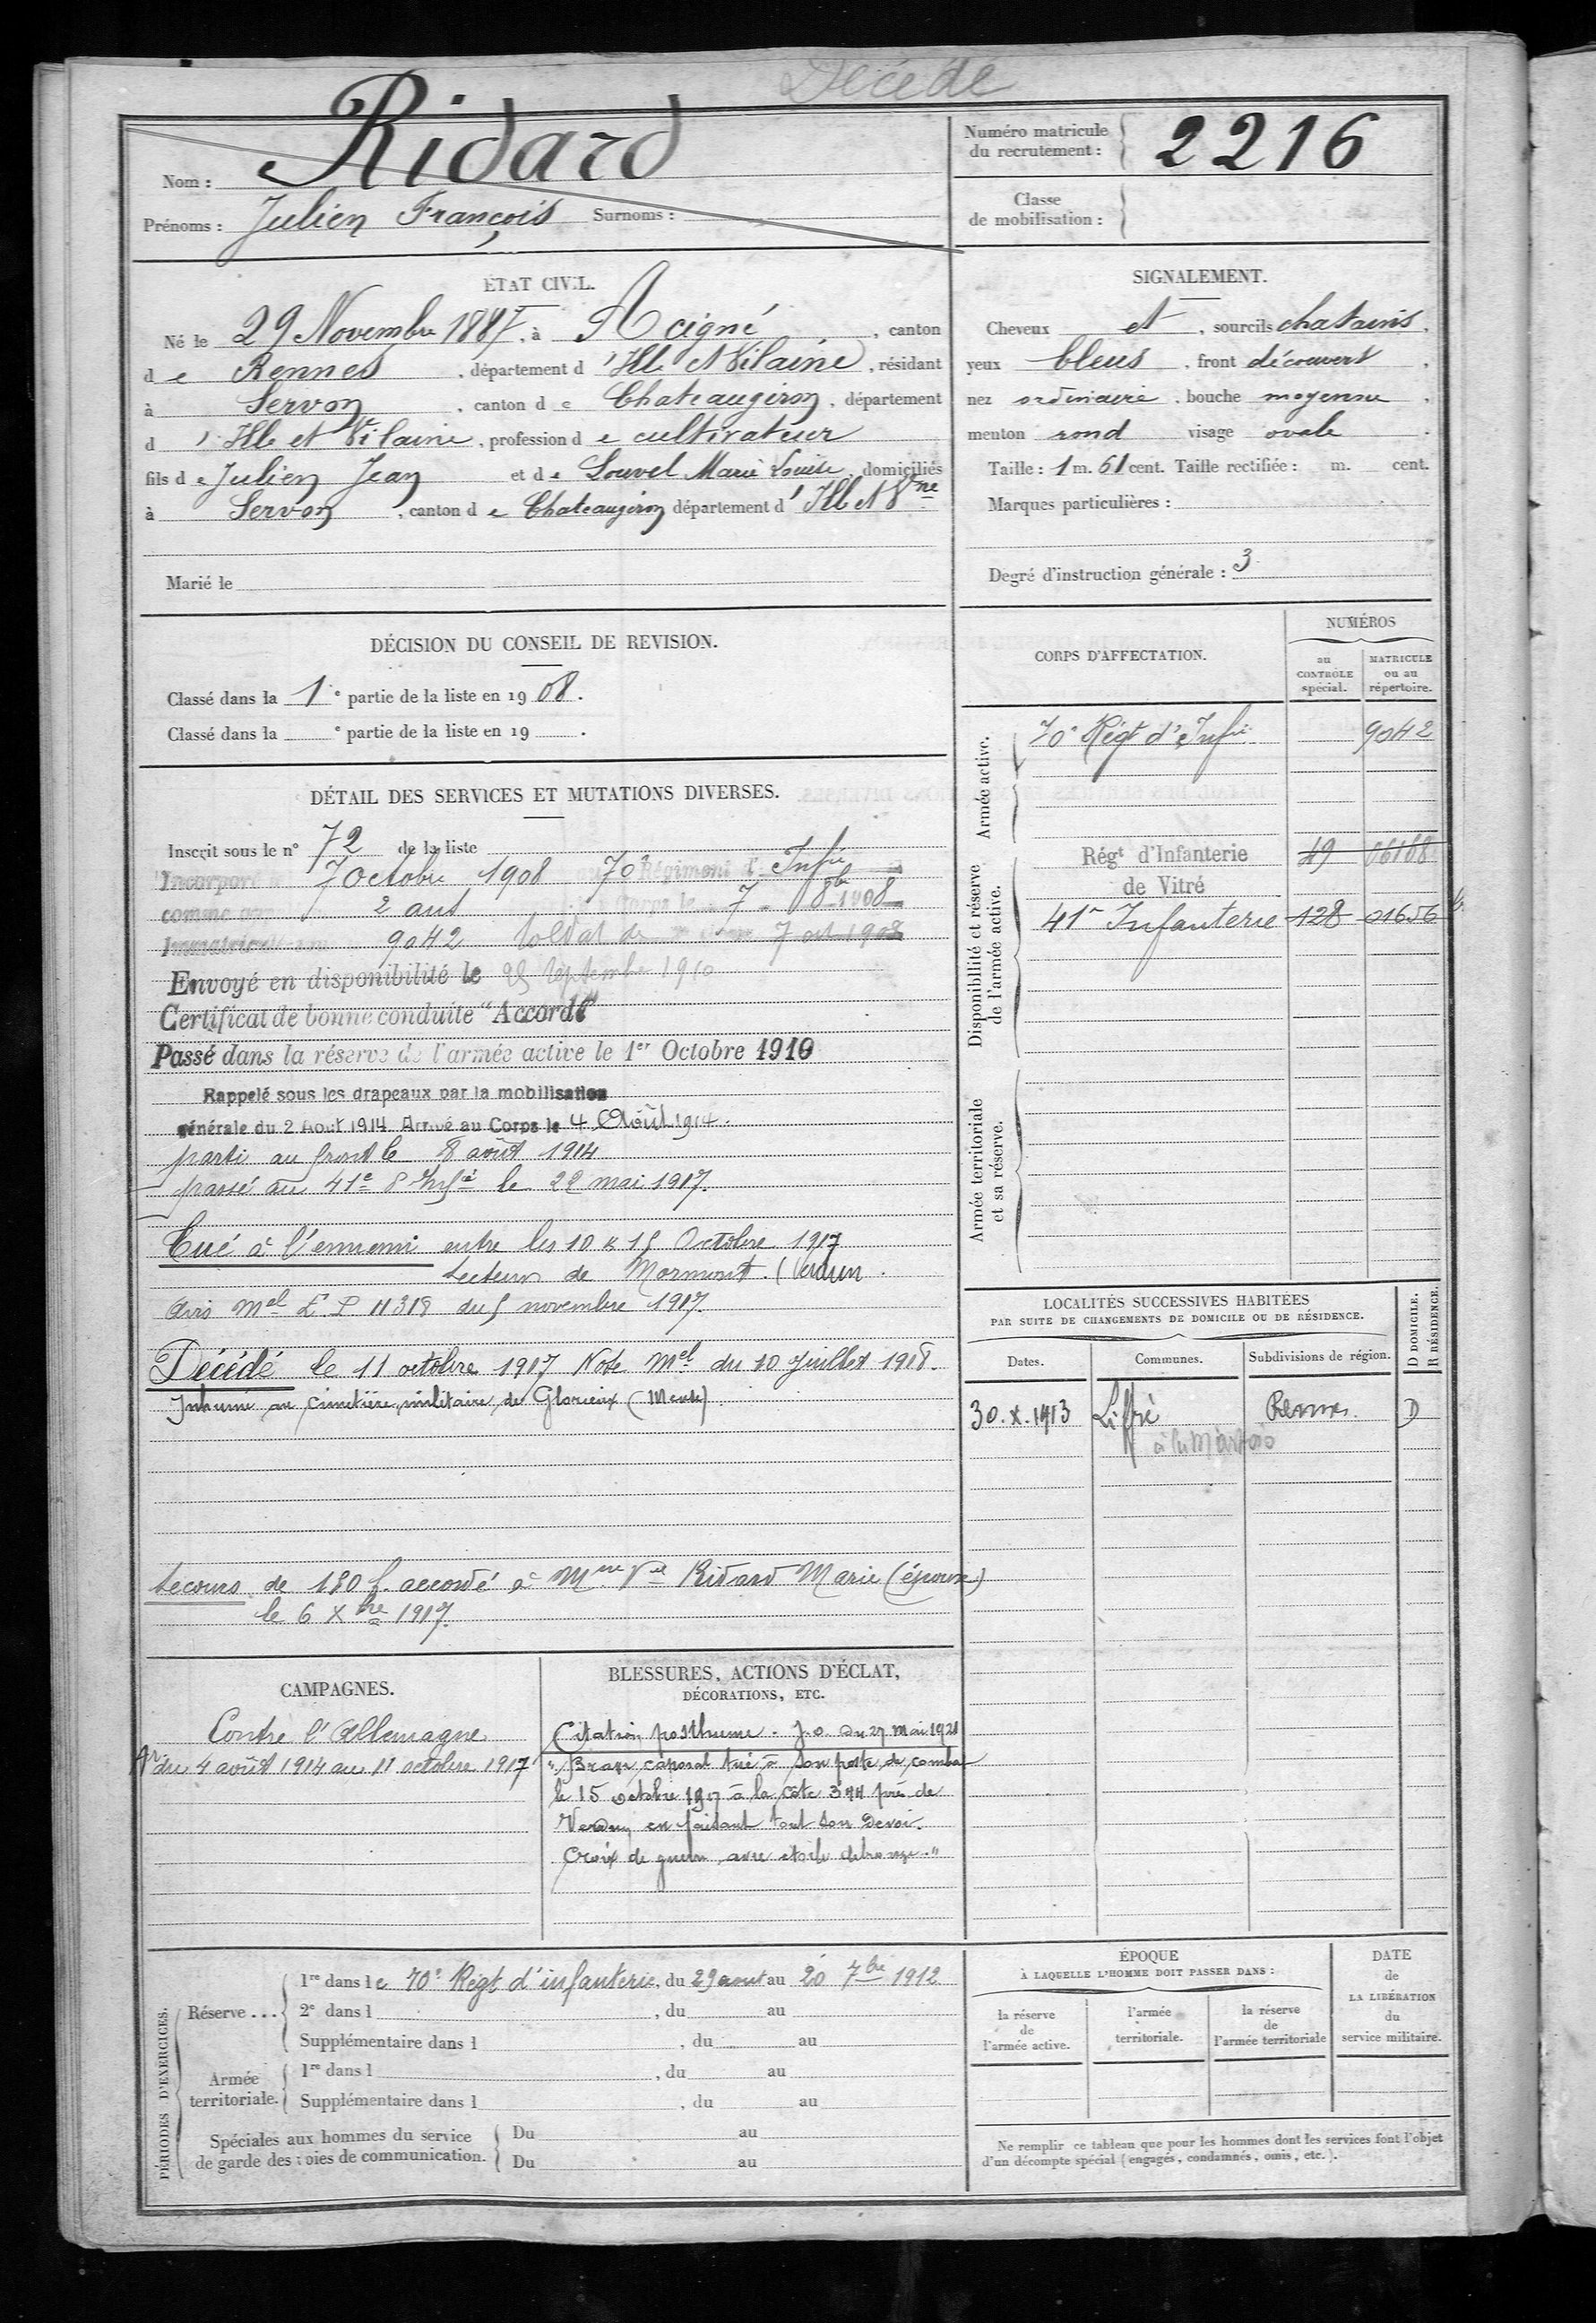 Décédé
Nom : Ridard
Prénoms : Julien François Surnoms :
Numéro matricule du recrutement : 2216
Classe de mobilisation :
ÉTAT CIVIL.
Né le 29 Novembre 1887, à Acigné, canton
de Rennes, département d'Ille et Vilaine, résidant
à Servon, canton de Chateaugiron, département
d'Ille et Vilaine, profession de cultivateur
fils de Julien Jean et de Louvel Marie Louise, domiciliés
à Servon, canton de Chateaugiron département d'Ille et Vne
Marié le
SIGNALEMENT.
Cheveux et, sourcils chatains,
yeux bleus, front découvert,
nez ordinaire, bouche moyenne,
menton rond visage ovale.
Taille : 1 m. 61 cent. Taille rectifiée : m. cent.
Marques particulières :
Degré d'instruction générale : 3
DÉCISION DU CONSEIL DE REVISION.
Classé dans la 1e partie de la liste en 1908.
Classé dans la e partie de la liste en 19 .
DÉTAIL DES SERVICES ET MUTATIONS DIVERSES.
Inscrit sous le n° 72 de la liste
Incorporé 7 octobre 1908 au 70e Régiment d'Infie
comme 2 ans corps le 7 8bre 1908
9042 soldat de 7 oct 1908
Envoyé en disponibilité le 25 septembre 1910
Certificat de bonne conduite "Accordé"
Passé dans la réserve de l'armée active le 1er Octobre 1910
Rappelé sous les drapeaux par la mobilisation
générale du 2 Août 1914 Arrivé au Corps le 4 Août 1914.
parti au front le 8 août 1914
passé au 41e Infie le 22 mai 1917.
Tué à l'ennemi entre les 10 & 15 Octobre 1917
secteur de Mormont. (Verdun.
Avis Mel E. P 11318 du 5 novembre 1917.
Décédé le 11 octobre 1917 Note Mel du 10 Juillet 1918.
Inhumé au cimetière militaire de Glorieux (Meuse)
Secours de 150 f. accordé à Mme Vve Ridard Marie (épouse)
le 6 Xbre 1917.
CORPS D'AFFECTATION.
NUMÉROS
au CONTRÔLE spécial.
MATRICULE ou au répertoire.
Armée active.
70e Régt d'Infie 9042
Disponibilité et réserve de l'armée active.
Régt d'Infanterie 49 06168
de Vitré
41e Infanterie 128 01656
Armée territoriale et sa réserve.
LOCALITÉS SUCCESSIVES HABITÉES
PAR SUITE DE CHANGEMENTS DE DOMICILE OU DE RÉSIDENCE.
D DOMICILE.
R RÉSIDENCE.
Dates. Communes. Subdivisions de région.
30.X.1913 Liffré Rennes. D
CAMPAGNES.
Contre l'Allemagne
du 4 août 1914 au 11 octobre 1917
BLESSURES, ACTIONS D'ÉCLAT,
DÉCORATIONS, ETC.
Citation posthume - J.O. du 27 Mai 1921
"Brave caporal tué à son poste de combat
le 15 octobre 1917 à la côte 344 près de
Verdun en faisant tout son devoir.
Croix de guerre avec étoile de bronze."
PÉRIODES D'EXERCICES.
Réserve ...
1re dans le 70e Régt d'infanterie, du 29 aout au 20 7bre 1912
2e dans l , du au
Supplémentaire dans l , du au
Armée territoriale.
1re dans l , du au
Supplémentaire dans l , du au
Spéciales aux hommes du service
de garde des voies de communication.
Du au
Du au
ÉPOQUE
À LAQUELLE L'HOMME DOIT PASSER DANS :
la réserve de l'armée active.
l'armée territoriale.
la réserve de l'armée territoriale
DATE de LA LIBÉRATION du service militaire.
Ne remplir ce tableau que pour les hommes dont les services font l'objet
d'un décompte spécial (engagés, condamnés, omis, etc.).